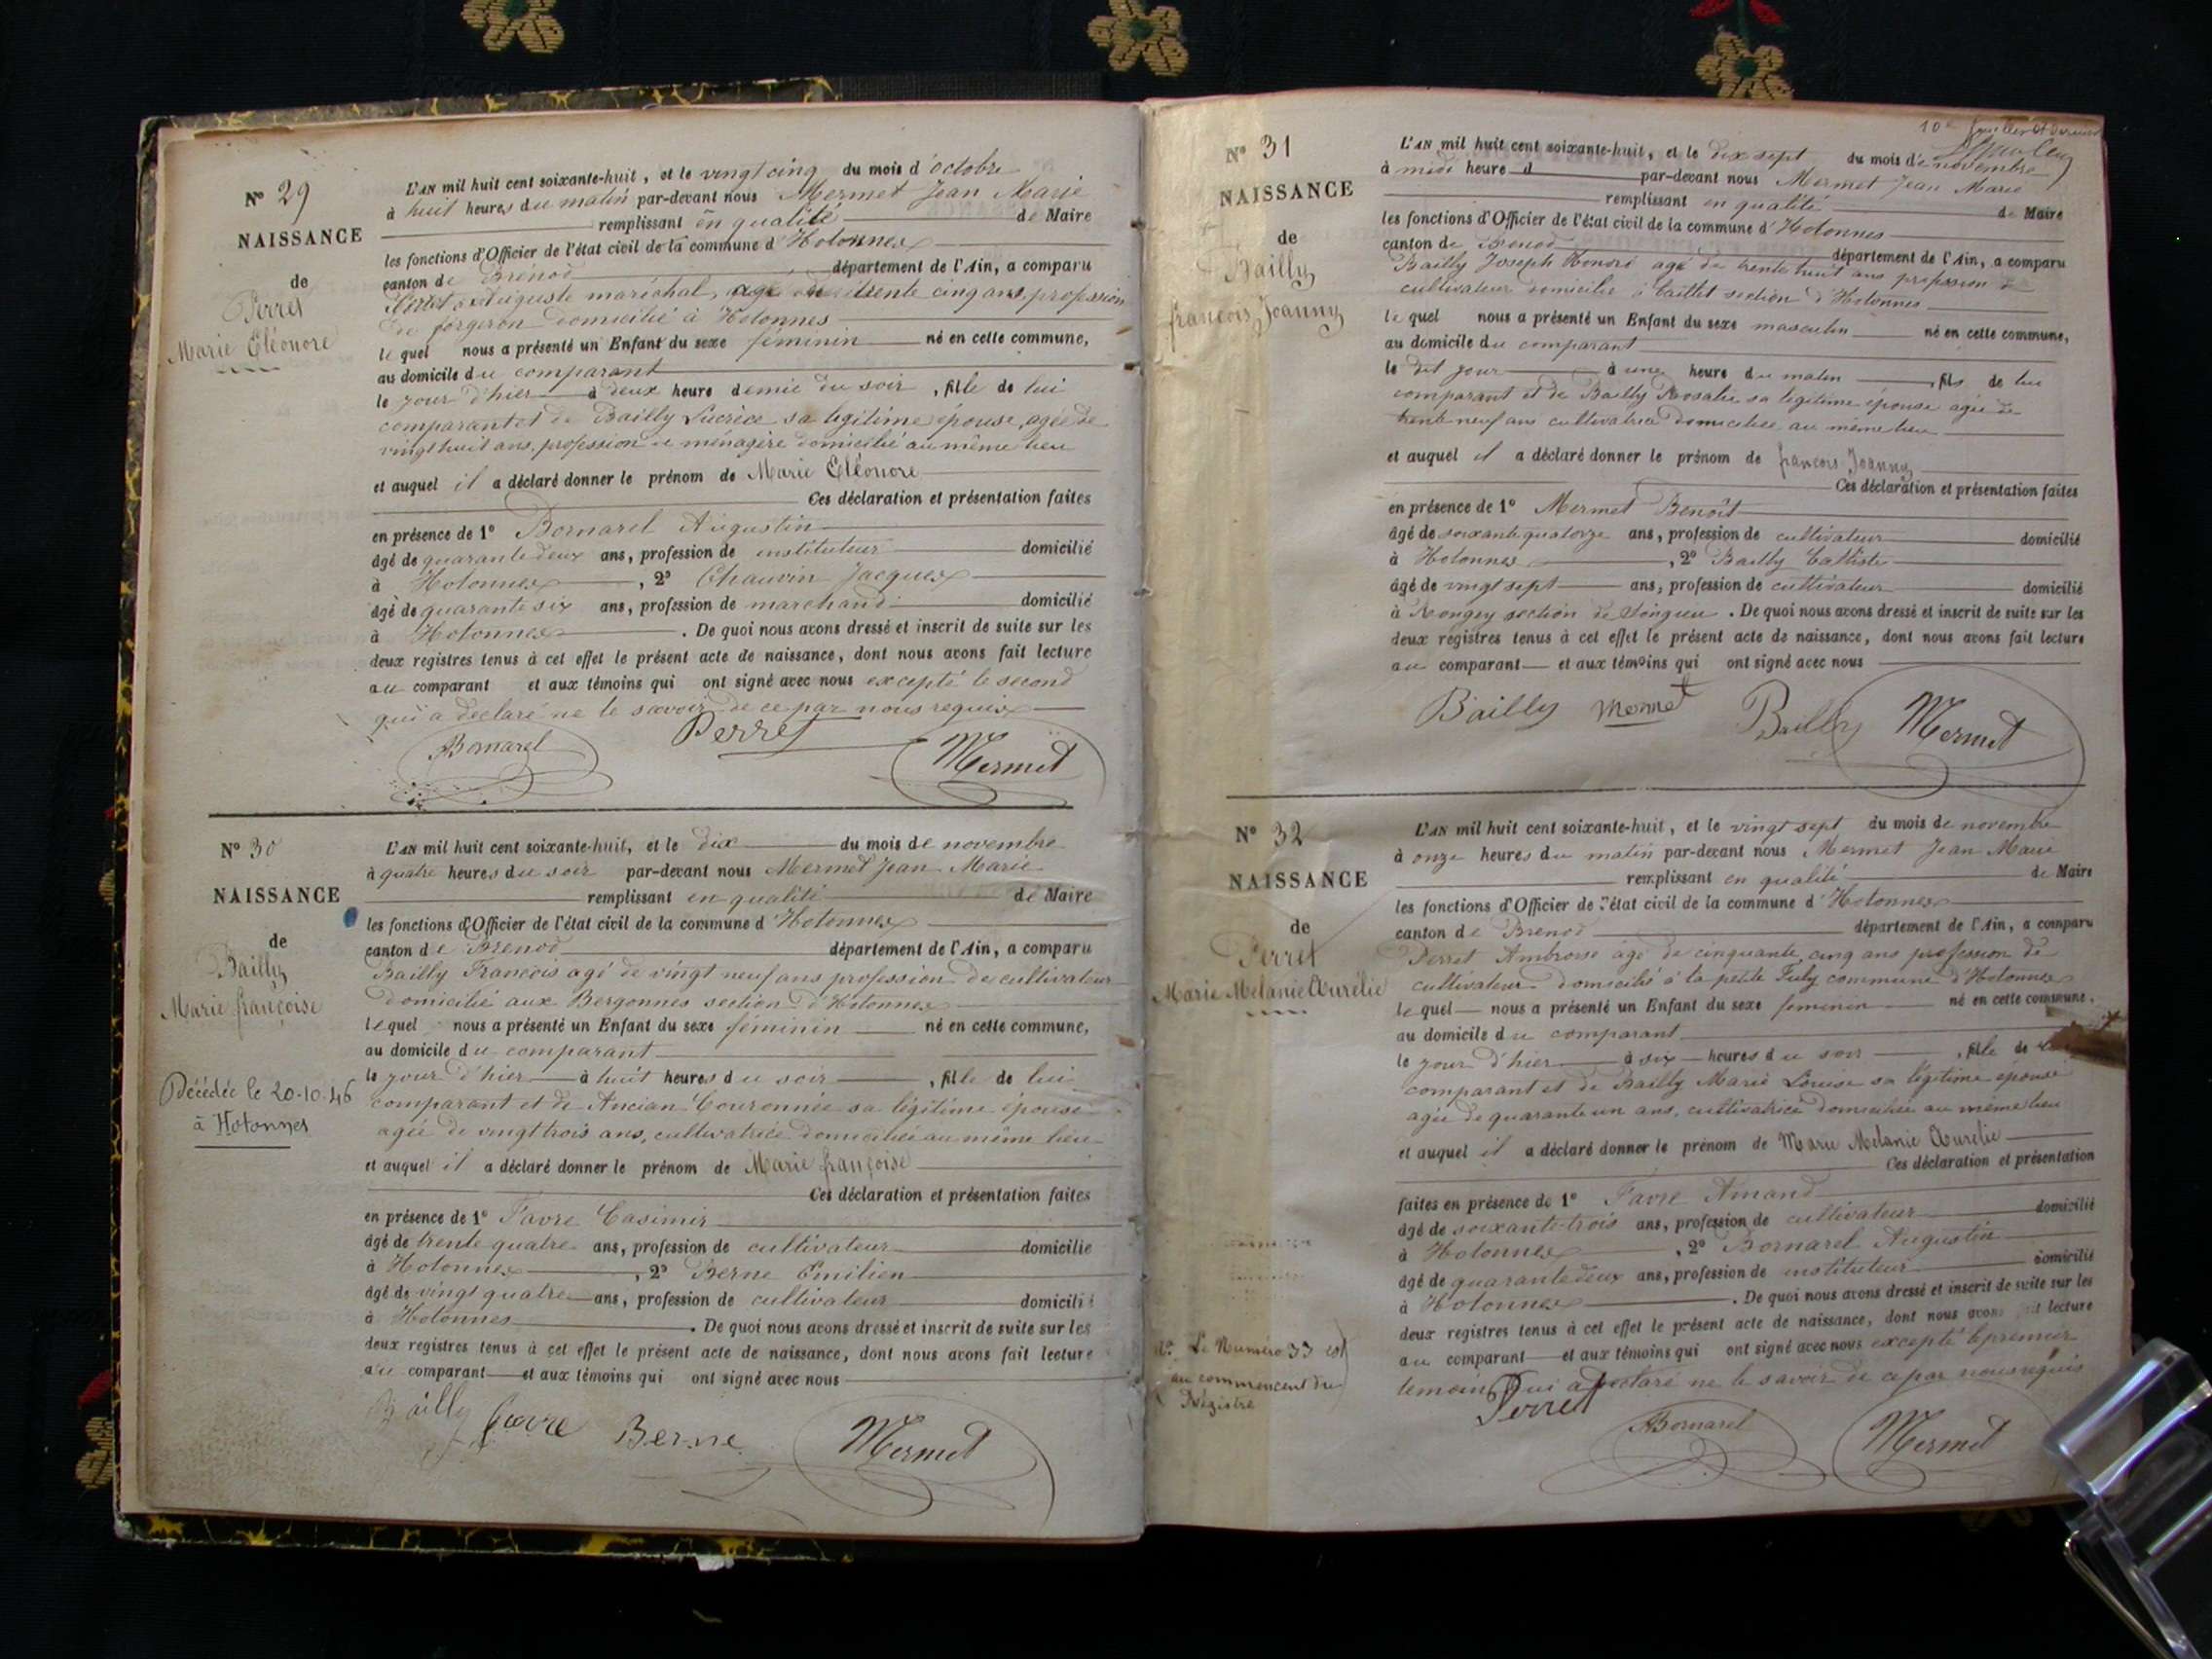 N° 29
NAISSANCE
de
Perret
Marie Eléonore
L'AN mil huit cent soixante-huit, et le vingt cinq du mois d'octobre
à huit heures du matin par-devant nous Mermet Jean Marie
remplissant en qualité de Maire
les fonctions d'Officier de l'état civil de la commune d'Hotonnes
canton de Brénod département de l'Ain, a comparu
Perret Auguste maréchal, agé de trente cinq ans, profession
de forgeron domicilié à Hotonnes
lequel nous a présenté un Enfant du sexe féminin né en cette commune,
au domicile du comparant
le jour d'hier à deux heure demie du soir, fille de lui
comparant et de Bailly Lucrèce sa légitime épouse, agée de
vingt huit ans, profession de ménagère domicilié au même lieu
et auquel il a déclaré donner le prénom de Marie Eléonore
Ces déclaration et présentation faites
en présence de 1° Bornarel Augustin
âgé de quarante deux ans, profession de instituteur domicilié
à Hotonnes, 2° Chauvin Jacques
âgé de quarante six ans, profession de marchand domicilié
à Hotonnes. De quoi nous avons dressé et inscrit de suite sur les
deux registres tenus à cet effet le présent acte de naissance, dont nous avons fait lecture
au comparant et aux témoins qui ont signé avec nous excepté le second
qui a déclaré ne le savoir de ce par nous requis
Bornarel Perret Mermet
N° 30
NAISSANCE
de
Bailly
Marie françoise
Décédée le 20-10-46
à Hotonnes
L'AN mil huit cent soixante-huit, et le dix du mois de novembre
à quatre heures du soir par-devant nous Mermet Jean Marie
remplissant en qualité de Maire
les fonctions d'Officier de l'état civil de la commune d'Hotonnes
canton de Brenod département de l'Ain, a comparu
Bailly François agé de vingt neuf ans profession de cultivateur
domicilié aux Bergonnes section d'Hotonnes
lequel nous a présenté un Enfant du sexe féminin né en cette commune,
au domicile du comparant
le jour d'hier à huit heures du soir, fille de lui
comparant et de Ancian Couronnée sa légitime épouse
agée de vingt trois ans, cultivatrice domiciliée au même lieu
et auquel il a déclaré donner le prénom de Marie françoise
Ces déclaration et présentation faites
en présence de 1° Favre Casimir
âgé de trente quatre ans, profession de cultivateur domicilié
à Hotonnes, 2° Berne Émilien
âgé de vingt quatre ans, profession de cultivateur domicilié
à Hotonnes. De quoi nous avons dressé et inscrit de suite sur les
deux registres tenus à cet effet le présent acte de naissance, dont nous avons fait lecture
au comparant et aux témoins qui ont signé avec nous
Bailly favre Berne Mermet
N° 31
NAISSANCE
de
Bailly
françois Joanny
L'AN mil huit cent soixante-huit, et le dix sept du mois de novembre
à midi heure par-devant nous Mermet Jean Marie
remplissant en qualité de Maire
les fonctions d'Officier de l'état civil de la commune d'Hotonnes
canton de Brenod département de l'Ain, a comparu
Bailly Joseph Honoré agé de trente huit ans profession de
cultivateur domicilié à section d'Hotonnes
lequel nous a présenté un Enfant du sexe masculin né en cette commune,
au domicile du comparant
le dit jour à une heure du matin, fils de lui
comparant et de Bailly Rosalie sa légitime épouse agée de
trente neuf ans cultivatrice domiciliée au même lieu
et auquel il a déclaré donner le prénom de françois Joanny
Ces déclaration et présentation faites
en présence de 1° Mermet Benoit
âgé de soixante quatorze ans, profession de cultivateur domicilié
à Hotonnes, 2° Bailly Battiste
âgé de vingt sept ans, profession de cultivateur domicilié
à Rongey section de Songieu. De quoi nous avons dressé et inscrit de suite sur les
deux registres tenus à cet effet le présent acte de naissance, dont nous avons fait lecture
au comparant et aux témoins qui ont signé avec nous
Bailly Mermet Bailly Mermet
N° 32
NAISSANCE
de
Perret
Marie Mélanie Aurélie
N° Le Numéro 33 est
au commencent du
Régistre
L'AN mil huit cent soixante-huit, et le vingt sept du mois de novembre
à onze heures du matin par-devant nous Mermet Jean Marie
remplissant en qualité de Maire
les fonctions d'Officier de l'état civil de la commune d'Hotonnes
canton de Brenod département de l'Ain, a comparu
Perret Ambroise âgé de cinquante cinq ans profession de
cultivateur domicilié à la petite commune d'Hotonnes
lequel nous a présenté un Enfant du sexe féminin né en cette commune,
au domicile du comparant
le jour d'hier à six heures du soir, fille de
comparant et de Bailly Marie Louise sa légitime épouse
agée de quarante un ans, cultivatrice domiciliée au même lieu
et auquel il a déclaré donner le prénom de Marie Mélanie Aurélie
Ces déclaration et présentation
faites en présence de 1° Favre Amand
âgé de soixante-trois ans, profession de cultivateur domicilié
à Hotonnes, 2° Bornarel Augustin
âgé de quarante deux ans, profession de instituteur domicilié
à Hotonnes. De quoi nous avons dressé et inscrit de suite sur les
deux registres tenus à cet effet le présent acte de naissance, dont nous avons fait lecture
au comparant et aux témoins qui ont signé avec nous excepté le premier
témoin qui a déclaré ne le savoir de ce par nous requis
Perret Bornarel Mermet